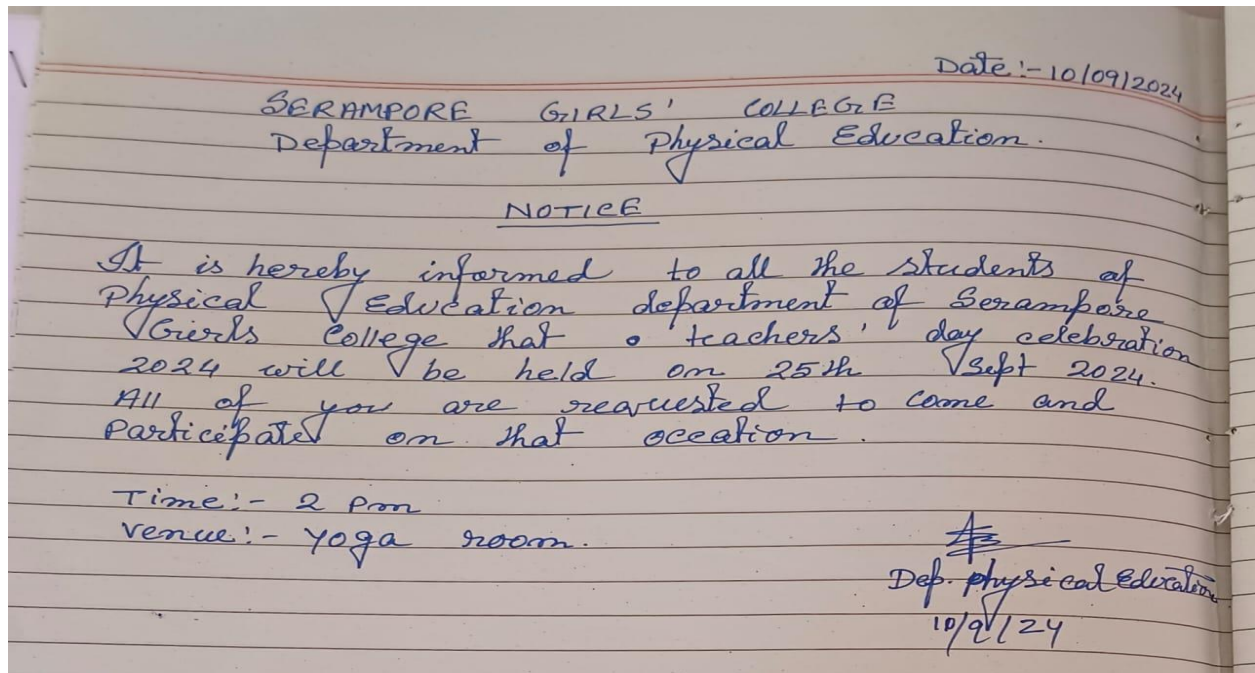 Date:- 10/09/2024
SERAMPORE GIRLS' COLLEGE
Department of Physical Education.
NOTICE
It is hereby informed to all the students of
Physical Education department of Serampore
Girls College that teachers' day celebration
2024 will be held on 25th Sept 2024.
All of you are requested to come and
Participate on that occation.
Time:- 2 Pm
Venue:- Yoga room.
Dep. physical Education
10/9/24